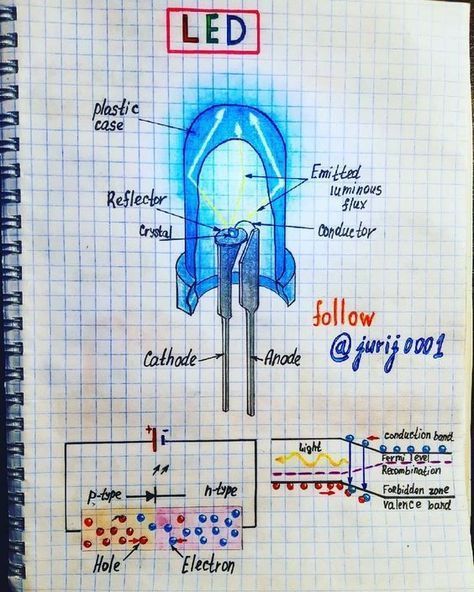 LED
plastic
case
Emitted
luminous
flux
Reflector
Crystal
Conductor
follow
@jurij0001
Cathode
Anode
+ -
p-type
n-type
Hole
Electron
Light
conduction band
Fermi level
Recombination
Forbidden zone
valence band